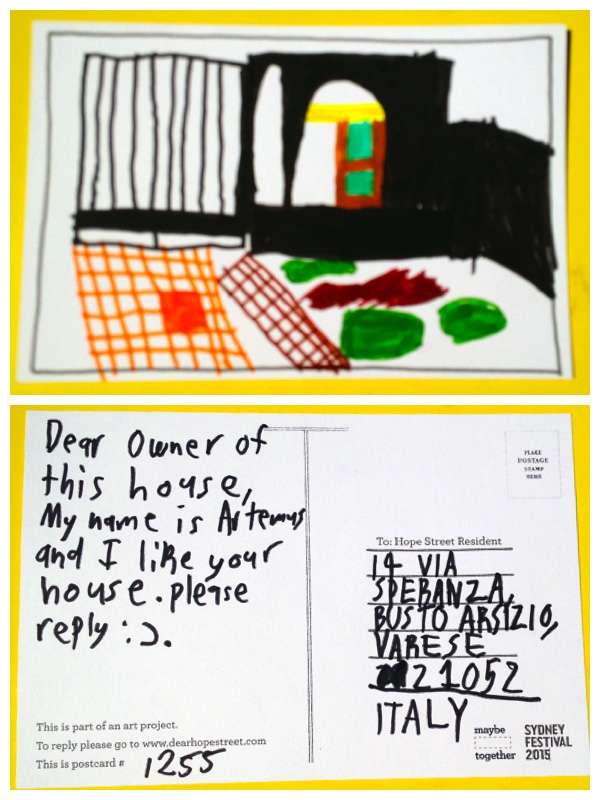 Dear Owner of
this house,
My name is Artemus
and I like your
house. please
reply :).
This is part of an art project.
To reply please go to www.dearhopestreet.com
This is postcard # 1255
PLACE
POSTAGE
STAMP
HERE
To: Hope Street Resident
14 VIA
SPERANZA,
BUSTO ARSIZIO,
VARESE
21052
ITALY
maybe
together
SYDNEY
FESTIVAL
2015